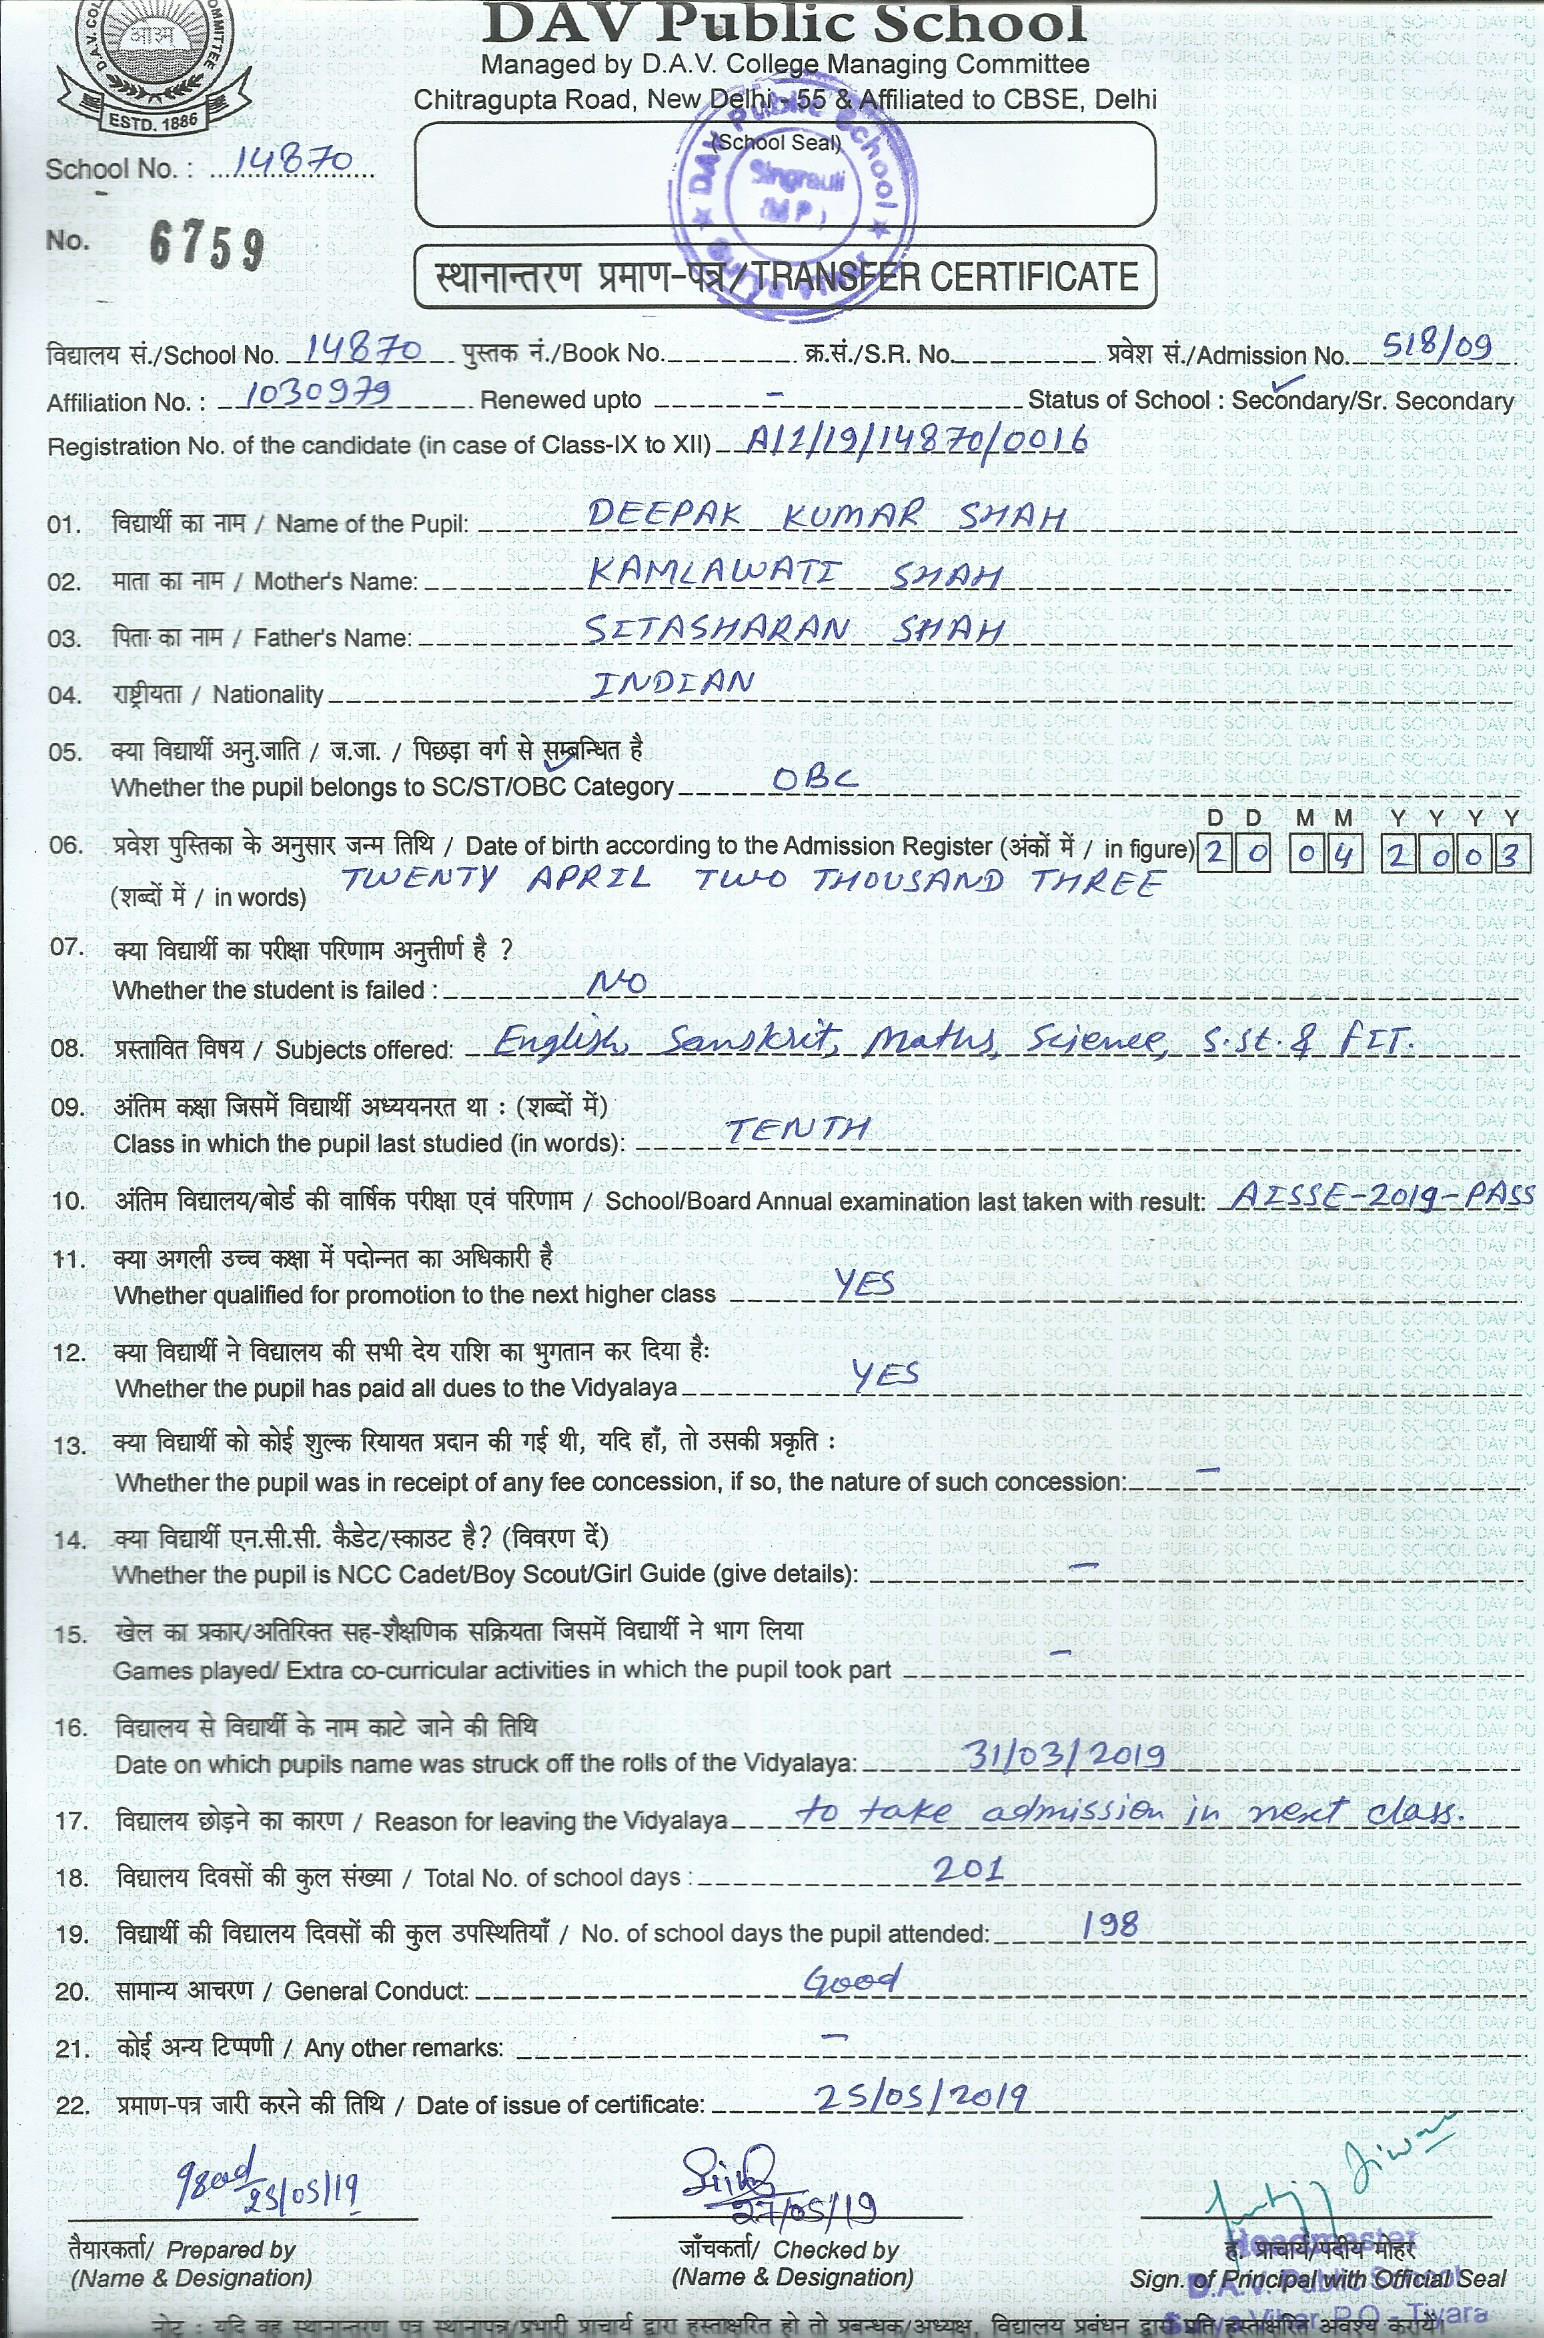 DAV Public School
Managed by D.A.V. College Managing Committee
Chitragupta Road, New Delhi - 55 & Affiliated to CBSE, Delhi
ESTD. 1886
(School Seal)
DAV Public School
Singrauli
(M P)
School No. : 14870
No. 6759
स्थानान्तरण प्रमाण-पत्र/TRANSFER CERTIFICATE
विद्यालय सं./School No. 14870 पुस्तक नं./Book No. क्र.सं./S.R. No. प्रवेश सं./Admission No. 518/09
Affiliation No. : 1030979 Renewed upto - Status of School : Secondary/Sr. Secondary
Registration No. of the candidate (in case of Class-IX to XII) A/1/19/14870/0016
01. विद्यार्थी का नाम / Name of the Pupil: DEEPAK KUMAR SHAH
02. माता का नाम / Mother's Name: KAMLAWATI SHAH
03. पिता का नाम / Father's Name: SITASHARAN SHAH
04. राष्ट्रीयता / Nationality INDIAN
05. क्या विद्यार्थी अनु.जाति / ज.जा. / पिछड़ा वर्ग से सम्बन्धित है
Whether the pupil belongs to SC/ST/OBC Category OBC
D D M M Y Y Y Y
06. प्रवेश पुस्तिका के अनुसार जन्म तिथि / Date of birth according to the Admission Register (अंकों में / in figure) 2 0 0 4 2 0 0 3
(शब्दों में / in words) TWENTY APRIL TWO THOUSAND THREE
07. क्या विद्यार्थी का परीक्षा परिणाम अनुत्तीर्ण है ?
Whether the student is failed : NO
08. प्रस्तावित विषय / Subjects offered: English, Sanskrit, Maths, Science, S.St. & FIT.
09. अंतिम कक्षा जिसमें विद्यार्थी अध्ययनरत था : (शब्दों में)
Class in which the pupil last studied (in words): TENTH
10. अंतिम विद्यालय/बोर्ड की वार्षिक परीक्षा एवं परिणाम / School/Board Annual examination last taken with result: AISSE-2019-PASS
11. क्या अगली उच्च कक्षा में पदोन्नत का अधिकारी है
Whether qualified for promotion to the next higher class YES
12. क्या विद्यार्थी ने विद्यालय की सभी देय राशि का भुगतान कर दिया है:
Whether the pupil has paid all dues to the Vidyalaya YES
13. क्या विद्यार्थी को कोई शुल्क रियायत प्रदान की गई थी, यदि हाँ, तो उसकी प्रकृति :
Whether the pupil was in receipt of any fee concession, if so, the nature of such concession: -
14. क्या विद्यार्थी एन.सी.सी. कैडेट/स्काउट है? (विवरण दें)
Whether the pupil is NCC Cadet/Boy Scout/Girl Guide (give details): -
15. खेल का प्रकार/अतिरिक्त सह-शैक्षणिक सक्रियता जिसमें विद्यार्थी ने भाग लिया
Games played/ Extra co-curricular activities in which the pupil took part -
16. विद्यालय से विद्यार्थी के नाम काटे जाने की तिथि
Date on which pupils name was struck off the rolls of the Vidyalaya: 31/03/2019
17. विद्यालय छोड़ने का कारण / Reason for leaving the Vidyalaya to take admission in next class.
18. विद्यालय दिवसों की कुल संख्या / Total No. of school days : 201
19. विद्यार्थी की विद्यालय दिवसों की कुल उपस्थितियाँ / No. of school days the pupil attended: 198
20. सामान्य आचरण / General Conduct: Good
21. कोई अन्य टिप्पणी / Any other remarks: -
22. प्रमाण-पत्र जारी करने की तिथि / Date of issue of certificate: 25/05/2019
25/05/19 27/05/19
तैयारकर्ता/ Prepared by जाँचकर्ता/ Checked by ह. प्राचार्य/पदीय मोहर
(Name & Designation) (Name & Designation) Sign. of Principal with Official Seal
Headmaster
D.A.V. Public School
Vihar, P.O - Tiyara
नोट : यदि वह स्थानान्तरण पत्र स्थानापन्न/प्रभारी प्राचार्य द्वारा हस्ताक्षरित हो तो प्रबन्धक/अध्यक्ष, विद्यालय प्रबंधन द्वारा प्रति हस्ताक्षरित अवश्य करायें।